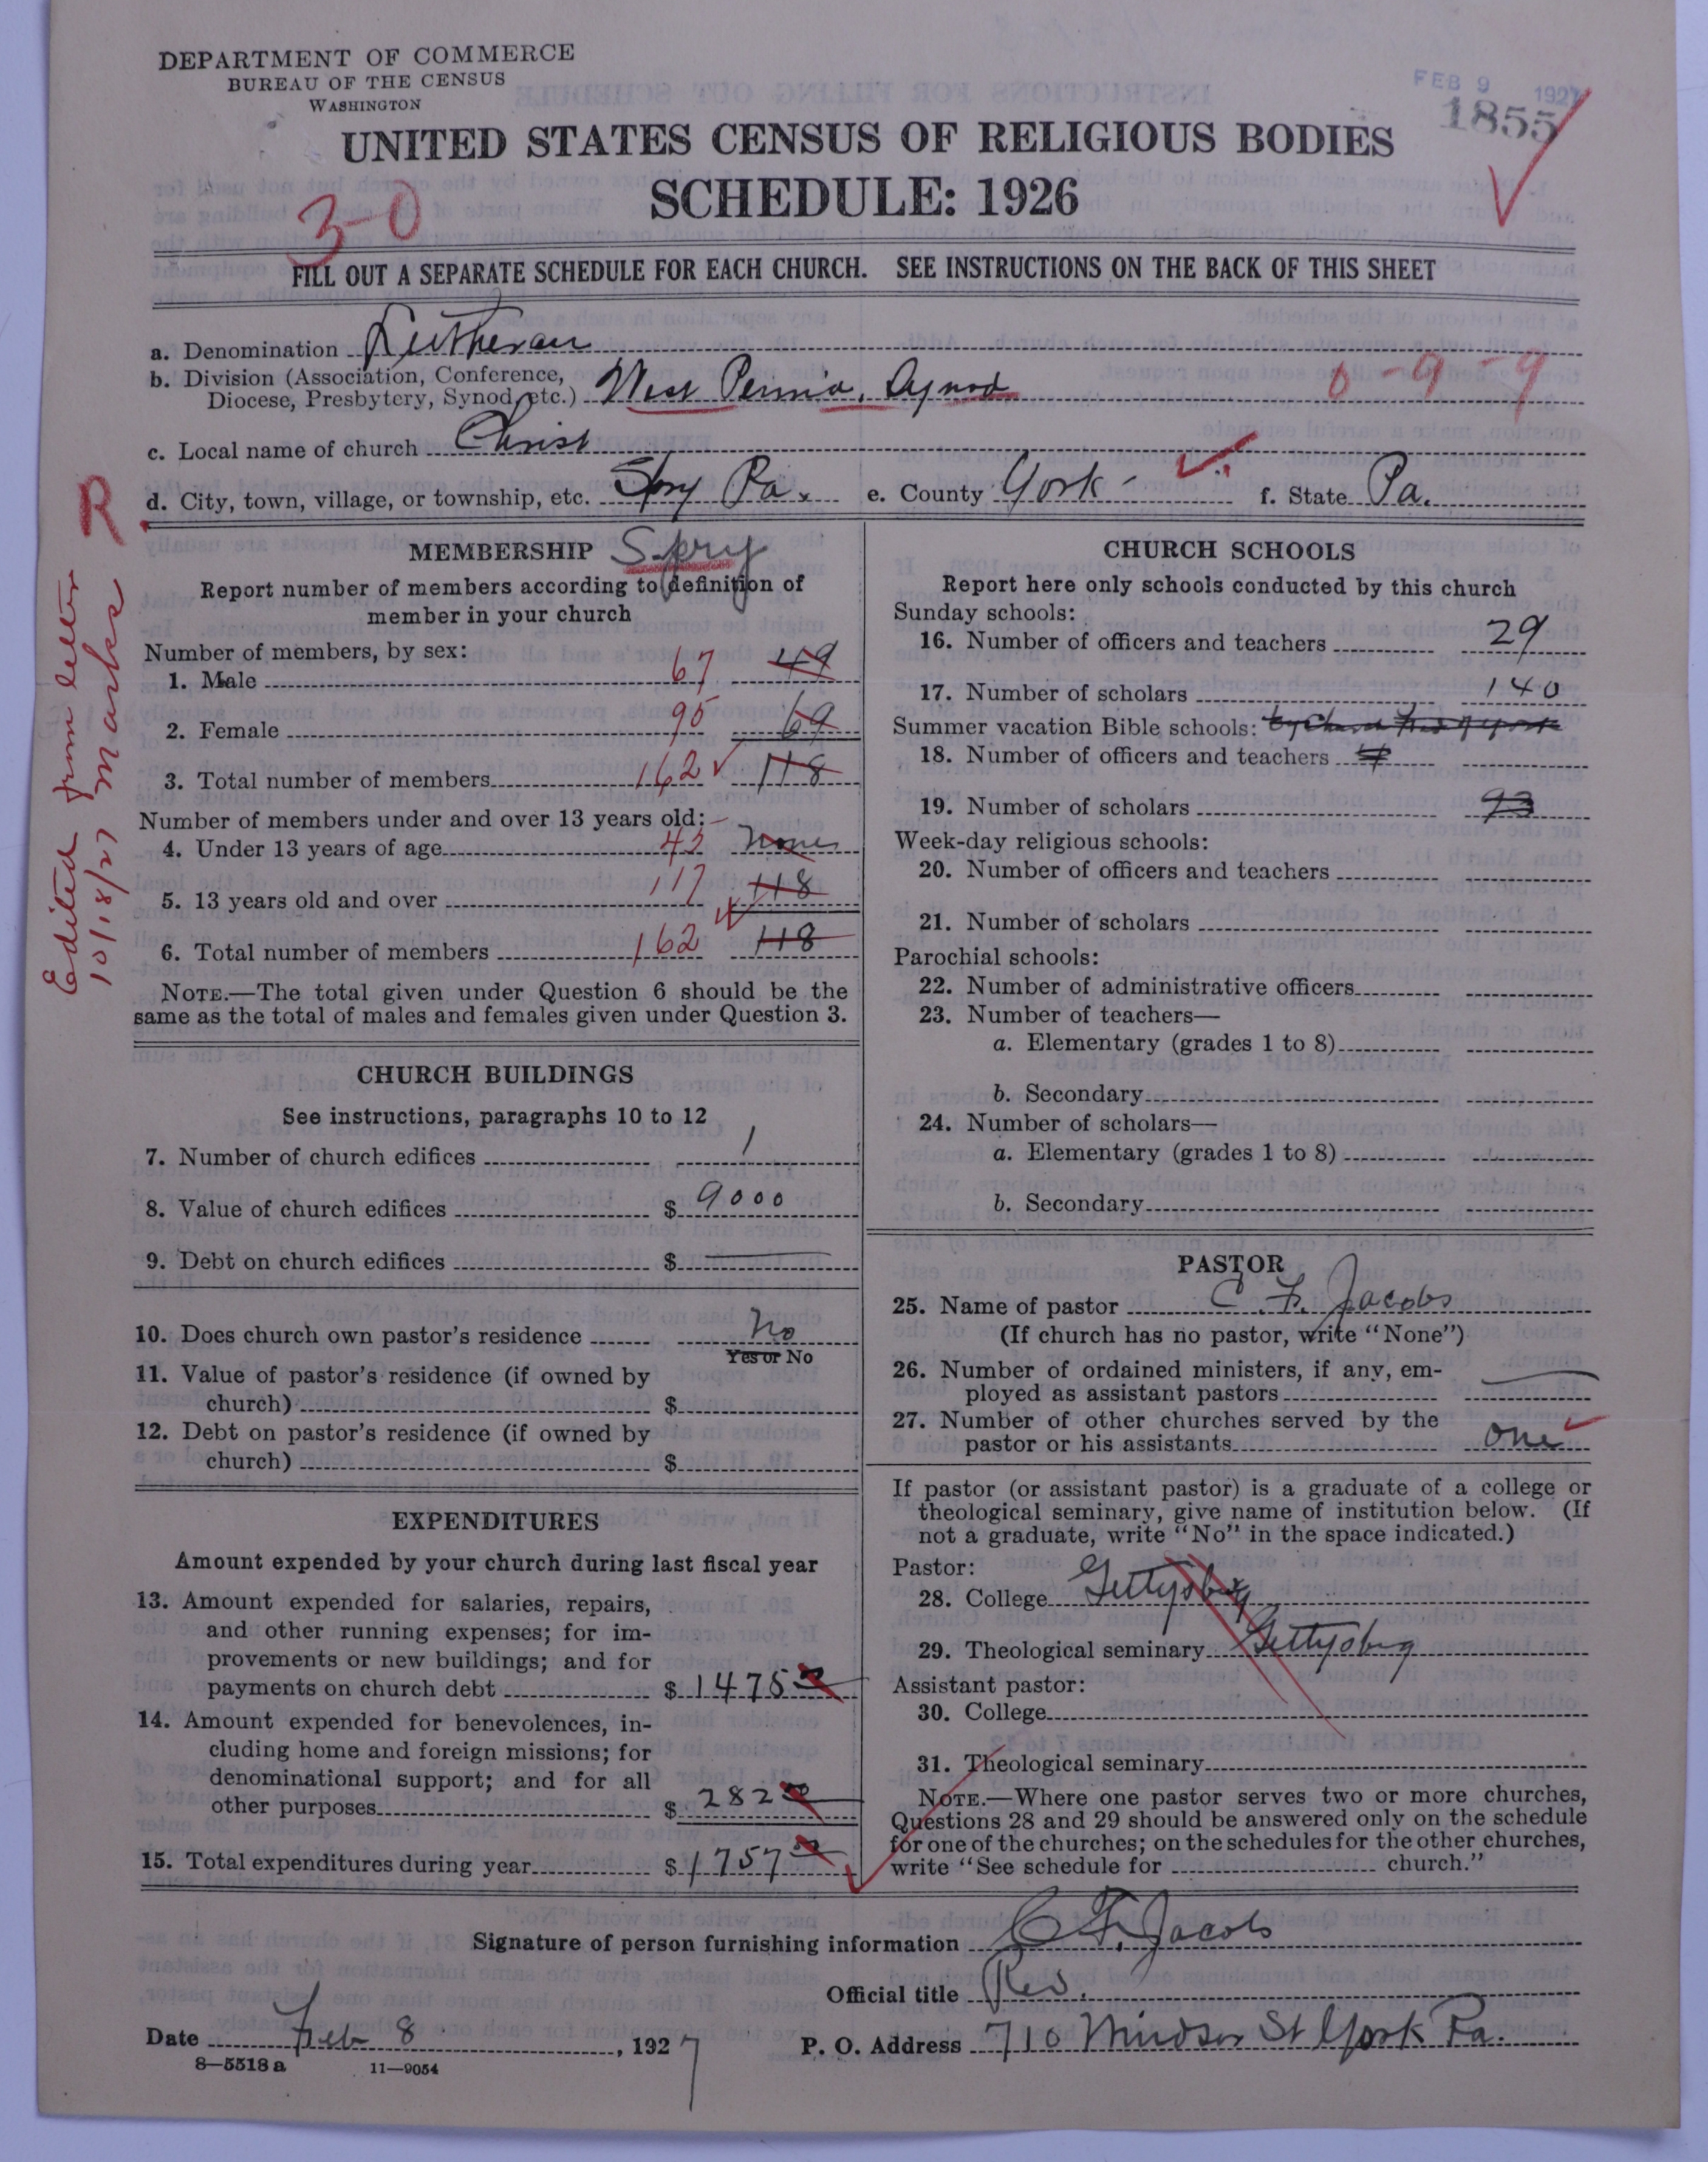 DEPARTMENT OF COMMERCE
BUREAU OF THE CENSUS
WASHINGTON
FEB 9 1927
1855
UNITED STATES CENSUS OF RELIGIOUS BODIES
SCHEDULE: 1926
3-0
FILL OUT A SEPARATE SCHEDULE FOR EACH CHURCH. SEE INSTRUCTIONS ON THE BACK OF THIS SHEET
a. Denomination Lutheran
b. Division (Association, Conference, Diocese, Presbytery, Synod, etc.) West Penn'a. Synod
0-9-9
c. Local name of church Christ
d. City, town, village, or township, etc. Spry Pa. e. County York f. State Pa.
R
Edited from letter
10/18/27 Marks
MEMBERSHIP Spry
Report number of members according to definition of
member in your church
Number of members, by sex:
1. Male 67 49
2. Female 95 69
3. Total number of members 162 118
Number of members under and over 13 years old:
4. Under 13 years of age None
5. 13 years old and over 117 118
6. Total number of members 162 118
NOTE.—The total given under Question 6 should be the
same as the total of males and females given under Question 3.
CHURCH BUILDINGS
See instructions, paragraphs 10 to 12
7. Number of church edifices 1
8. Value of church edifices $ 9000
9. Debt on church edifices $
10. Does church own pastor's residence No
Yes or No
11. Value of pastor's residence (if owned by
church) $
12. Debt on pastor's residence (if owned by
church) $
EXPENDITURES
Amount expended by your church during last fiscal year
13. Amount expended for salaries, repairs,
and other running expenses; for im-
provements or new buildings; and for
payments on church debt $ 1475
14. Amount expended for benevolences, in-
cluding home and foreign missions; for
denominational support; and for all
other purposes $ 282
15. Total expenditures during year $ 1757
CHURCH SCHOOLS
Report here only schools conducted by this church
Sunday schools:
16. Number of officers and teachers 29
17. Number of scholars 140
Summer vacation Bible schools:
18. Number of officers and teachers
19. Number of scholars 93
Week-day religious schools:
20. Number of officers and teachers
21. Number of scholars
Parochial schools:
22. Number of administrative officers
23. Number of teachers—
a. Elementary (grades 1 to 8)
b. Secondary
24. Number of scholars—
a. Elementary (grades 1 to 8)
b. Secondary
PASTOR
25. Name of pastor C. F. Jacobs
(If church has no pastor, write "None")
26. Number of ordained ministers, if any, em-
ployed as assistant pastors
27. Number of other churches served by the
pastor or his assistants one
If pastor (or assistant pastor) is a graduate of a college or
theological seminary, give name of institution below. (If
not a graduate, write "No" in the space indicated.)
Pastor:
28. College Gettysburg
29. Theological seminary Gettysburg
Assistant pastor:
30. College
31. Theological seminary
NOTE.—Where one pastor serves two or more churches,
Questions 28 and 29 should be answered only on the schedule
for one of the churches; on the schedules for the other churches,
write "See schedule for church."
Signature of person furnishing information C. F. Jacobs
Official title Rev.
Date Feb 8, 1927 P. O. Address 710 Windsor St York Pa.
8—5518 a 11—9054